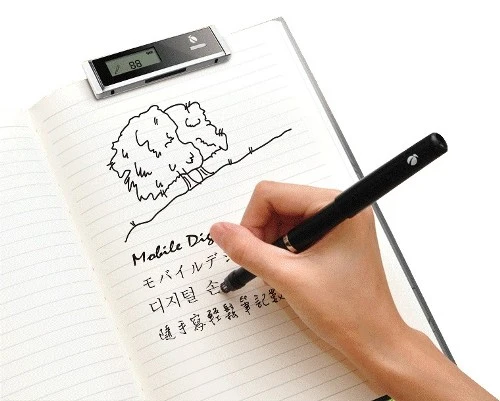 88
Mobile Dig
モバイルデジ
디지털 손
隨手寫輕鬆筆記數